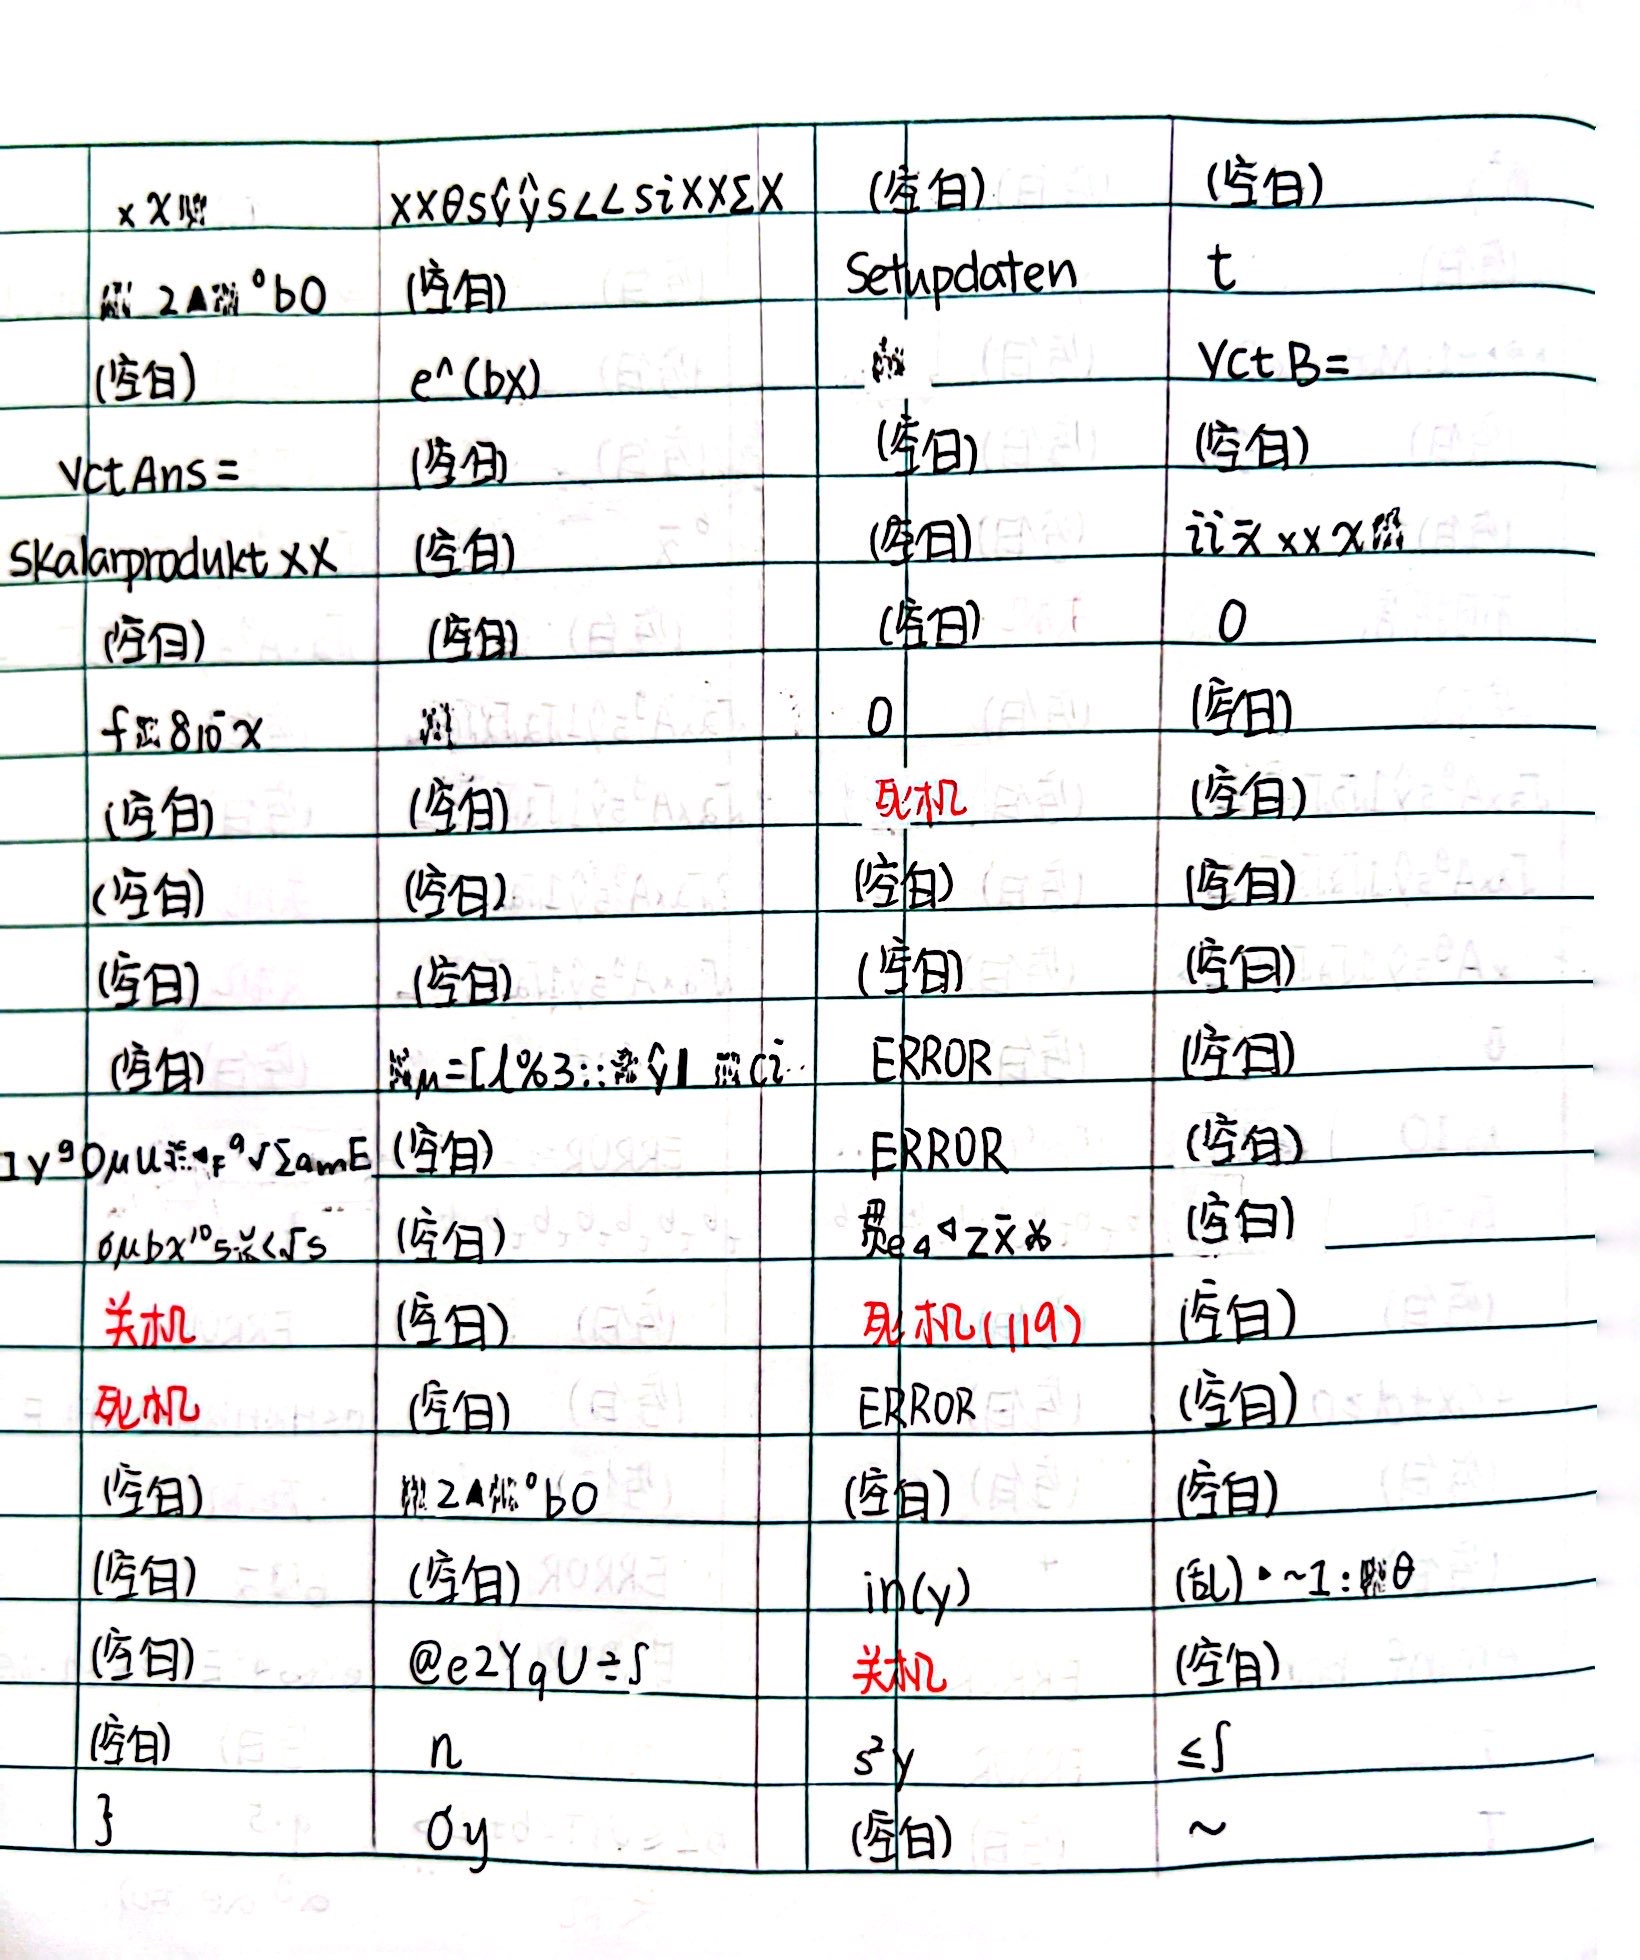 x X xxθsŷŷs∠∠siXXΣX (空白) (空白)
2▲ °b0 (空白) Setupdaten t
(空白) e^(bx) VctB=
VctAns= (空白) (空白) (空白)
Skalarprodukt XX (空白) (空白) ii x̄ xx x
(空白) (空白) (空白) 0
f 8 10 x 0 (空白)
(空白) (空白) 死机 (空白)
(空白) (空白) (空白) (空白)
(空白) (空白) (空白) (空白)
(空白) μ=[1%3:: ŷ1 ci ERROR (空白)
(空白) ERROR (空白)
(空白) (空白)
关机 (空白) 死机(119) (空白)
死机 (空白) ERROR (空白)
(空白) 2▲ °b0 (空白) (空白)
(空白) (空白) in(y) (乱)▸~1: θ
(空白) @e2YqU÷∫ 关机 (空白)
(空白) n s²y ≤∫
} σy (空白) ~